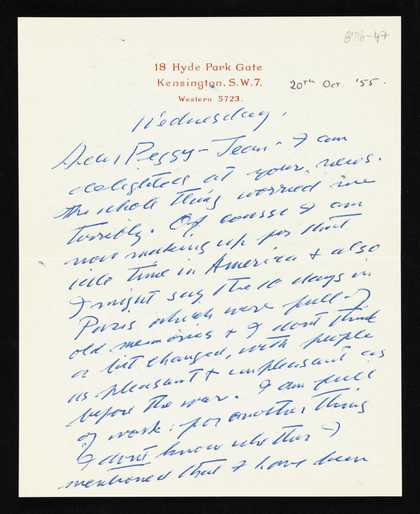 8716-47
18 Hyde Park Gate
Kensington. S.W.7.
Western 5723.
20th Oct '55.
Wednesday.
Dear Peggy-Jean - I am
delighted at your news.
the whole thing worried me
terribly. Of course I am
now making up for that
idle time in America & also
I might say the 10 days in
Paris which were full of
old memories & I dont think
a bit changed, with people
as pleasant & unpleasant as
before the war. I am full
of work: for another thing
I dont know whether I
mentioned that I have been